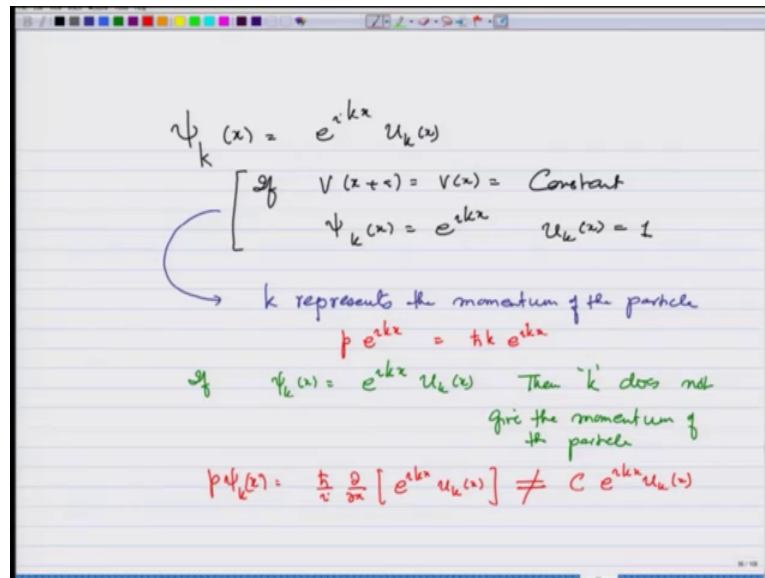 ψ_k (x) = e^{ikx} u_k(x)
If V(x+a) = V(x) = Constant
ψ_k(x) = e^{ikx} u_k(x) = 1
k represents the momentum of the particle
p e^{ikx} = ħk e^{ikx}
If ψ_k(x) = e^{ikx} u_k(x) Then 'k' does not
give the momentum of
the particle
pψ_k(x) = ħ/i ∂/∂x [ e^{ikx} u_k(x) ] ≠ C e^{ikx} u_k(x)